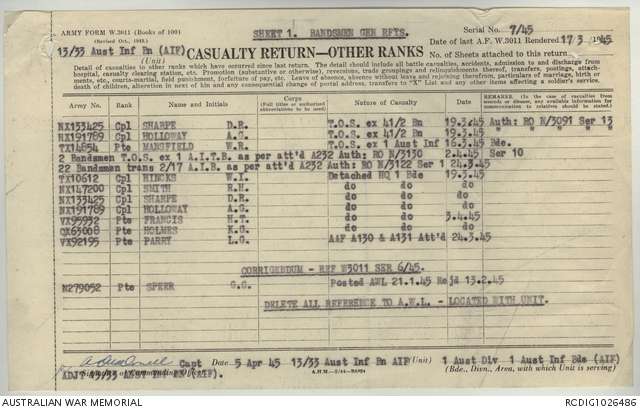 ARMY FORM W.3011 (Books of 100)
(Revised Oct., 1942.)
SHEET 1. BANDSMEN GEN RFTS.
Serial No. 7/45
13/33 Aust Inf Bn (AIF)
(Unit)
CASUALTY RETURN—OTHER RANKS
Date of last A.F. W.3011 Rendered 17 3 1945
No. of Sheets attached to this return
Detail of casualties to other ranks which have occurred since last return. The detail should include all battle casualties, accidents, admission to and discharge from
hospital, casualty clearing station, etc. Promotion (substantive or otherwise), reversions, trade groupings and relinquishments thereof, transfers, postings, attach-
ments, etc., courts-martial, field punishment, forfeiture of pay, etc. Leave of absence, absent without leave and rejoining therefrom, particulars of marriage, birth or
death of children, alteration in next of kin and any consequential change of postal address, transfers to "X" List and any other items affecting a soldier's service.
Army No. Rank Name and Initials Corps (Full titles or authorised abbreviations to be used) Nature of Casualty Date REMARKS. (In the case of casualties from wounds or disease, any available information for communication to relatives should be stated.)
NX133425 Cpl SHARPE D.R. T.O.S. ex 41/2 Bn 19.3.45 Auth: RO N/3091 Ser 13
NX191789 Cpl HOLLOWAY A.G. T.O.S. ex 41/2 Bn 19.3.45 RO N
TX14854 Pte MANSFIELD W.R. T.O.S. ex 1 Aust Inf Bde. 16.3.45
2 Bandsmen T.O.S. ex 1 A.I.T.B. as per att'd A232 Auth: RO N/3130 2.4.45 Ser 10
22 Bandsmen trans 2/17 A.I.B. as per att'd A232 Auth: RO N/3122 Ser 1 24.3.45
TX10612 Cpl HINCKS W.I. Detached HQ 1 Bde 19.3.45
NX147200 Cpl SMITH R.H. do do do
NX133425 Cpl SHARPE D.R. do do do
NX191789 Cpl HOLLOWAY A.G. do do do
VX95932 Pte FRANCIS H.T. do do 3.4.45
QX63008 Pte HOLMES K.G. do do do
VX92195 Pte PARRY L.G. AAF A130 & A131 Att'd 24.3.45
CORRIGENDUM - REF W3011 SER 6/45.
N279052 Pte SPEER G.G. Posted AWL 21.1.45 Rejd 13.2.45
DELETE ALL REFERENCE TO A.W.L. - LOCATED WITH UNIT.
Capt Date 5 Apr 45 13/33 Aust Inf Bn AIF (Unit) 1 Aust Div 1 Aust Inf Bde (AIF)
ADJT 13/33 AUST INF BN (AIF).
(Bde., Divn., Area, with which Unit is serving)
AUSTRALIAN WAR MEMORIAL
RCDIG1026486